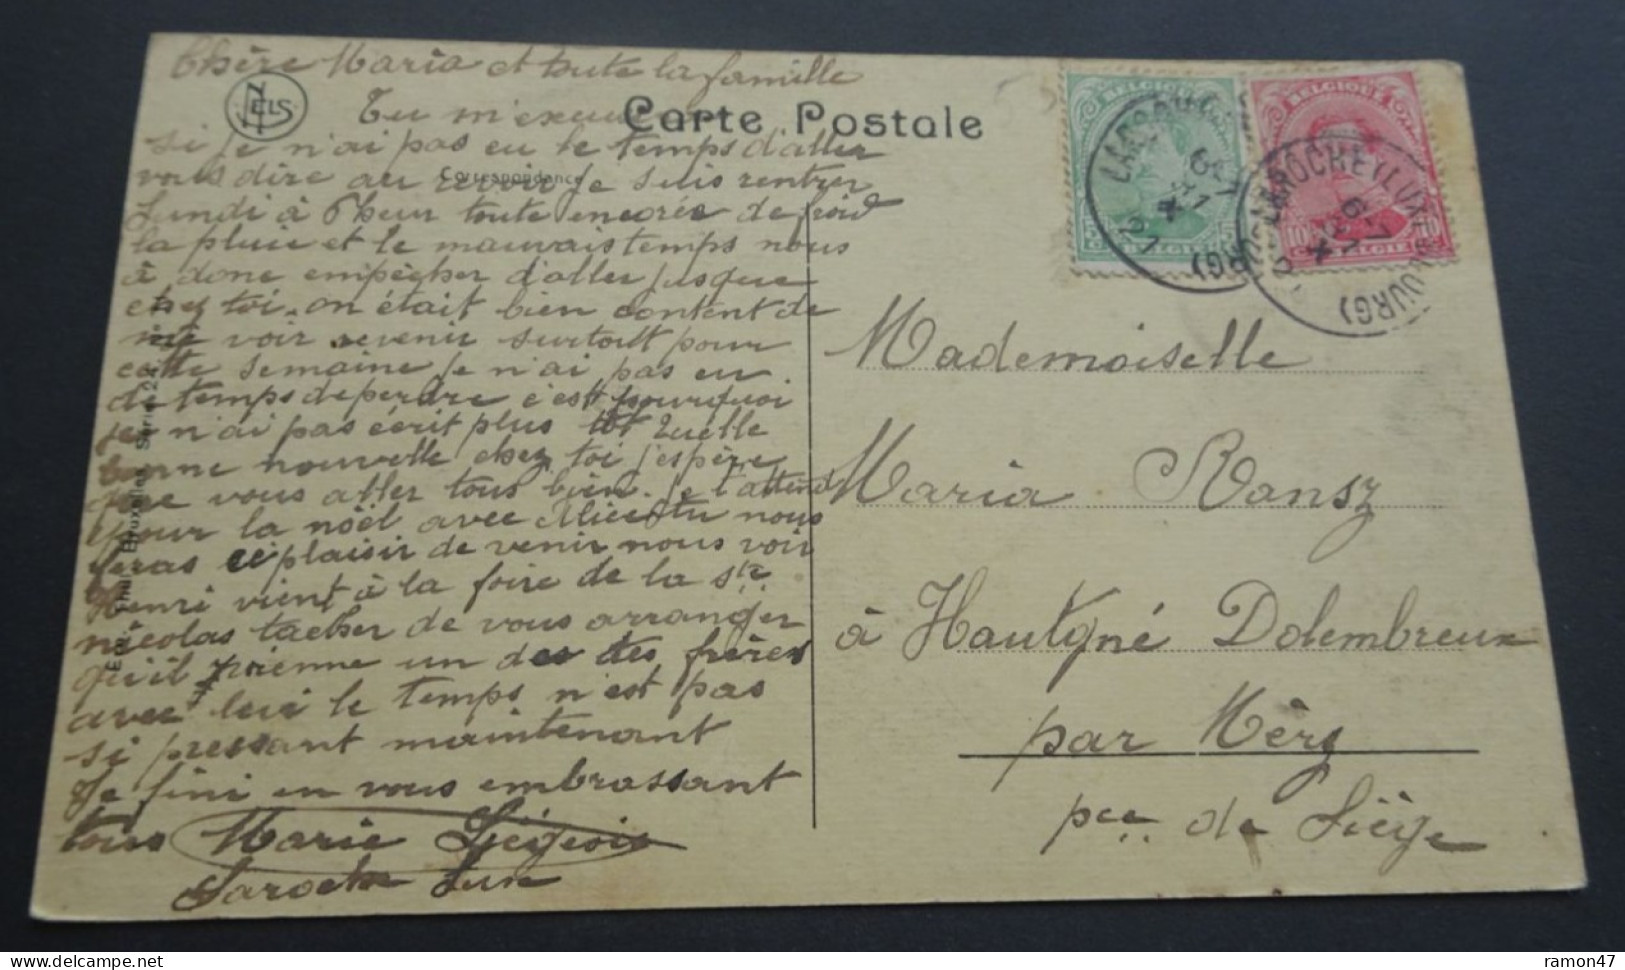 Chère Maria et toute la famille
NELS
Carte Postale
Tu m'excuse
si je n'ai pas eu le temps d'aller
Correspondance
vous dire au revoir je suis rentrer
Lundi à 7 heur toute encorée de froid
la pluie et le mauvais temps nous
à donc empêcher d'aller jusque
chez toi. on était bien content de
me voir revenir surtout pour
cette semaine je n'ai pas eu
de temps de perdre c'est pourquoi
je n'ai pas écrit plus tôt Quelle
bonne nouvelle chez toi j'espère
que vous aller tous bien. Je t'attend
pour la nöel avec Alice tu nous
feras plaisir de venir nous voir
Henri vient à la foire de la Ste
nicolas tacher de vous arranger
qu'il prenne un des tes frères
avec lui le temps n'est pas
si pressant maintenant
Je fini en vous embrassant
tous Marie Liégeois
Laroche Lux
Thill, Bruxelles, Série 22
BELGIQUE
5 5
BELGIË
BELGIQUE
10 10
BELGIE
LAROCHE (LUXEMBOURG)
Mademoiselle
Maria Ransz
à Hautgné Dolembreux
par Méry
pce de Liège
ramon47